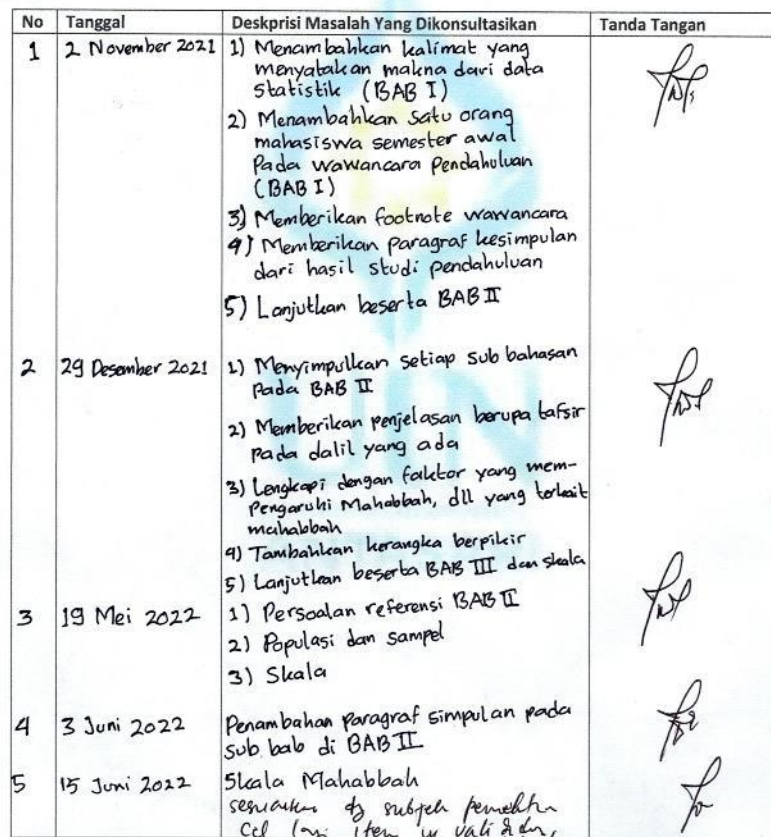 No Tanggal Deskprisi Masalah Yang Dikonsultasikan Tanda Tangan
1 2 November 2021 1) Menambahkan kalimat yang
menyatakan makna dari data
statistik (BAB I)
2) Menambahkan satu orang
mahasiswa semester awal
Pada wawancara Pendahuluan
(BAB I)
3) Memberikan footnote wawancara
4) Memberikan Paragraf kesimpulan
dari hasil studi pendahuluan
5) Lanjutkan beserta BAB II
2 29 Desember 2021 1) Menyimpulkan setiap sub bahasan
Pada BAB II
2) Memberikan penjelasan berupa tafsir
pada dalil yang ada
3) Lengkapi dengan faktor yang mem-
Pengaruhi Mahabbah, dll yang terkait
mahabbah
4) Tambahkan kerangka berpikir
5) Lanjutkan beserta BAB III dan skala
3 19 Mei 2022 1) Persoalan referensi BAB II
2) Populasi dan sampel
3) Skala
4 3 Juni 2022 Penambahan Paragraf simpulan pada
sub bab di BAB II
5 15 Juni 2022 Skala Mahabbah
sesuaikan dg subjek
item
UIN